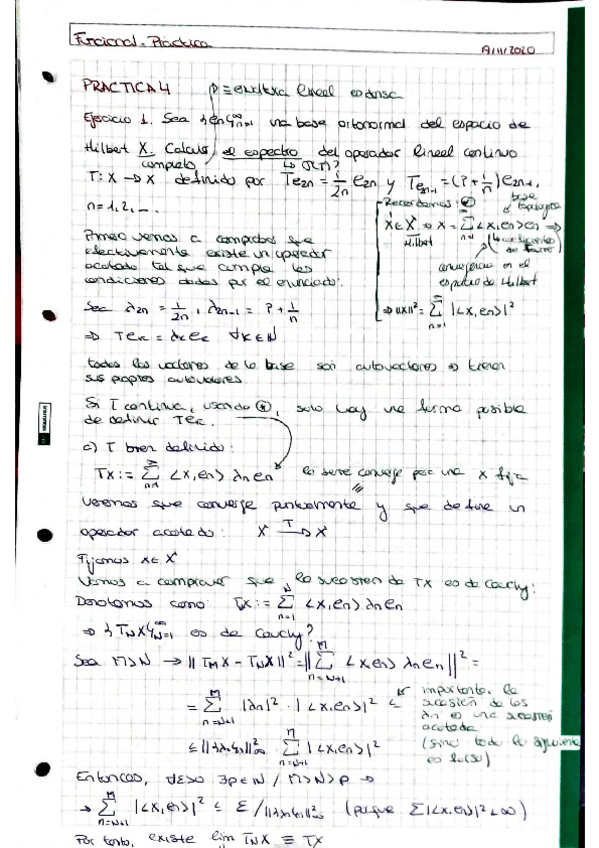 Funcional. Práctica
19/11/2020
PRACTICA 4
Ejercicio 1. Sea {en}∞n=1 una base ortonormal del espacio de
Hilbert X. Calcula el espectro del operador lineal continuo
completo
↳ σ(T)?
T: X → X definido por Te2n = 1/2n e2n y Te2n-1 = (i + 1/n) e2n-1,
n=1,2,...
Recordamos: ⊛
base
x ∈ X ⇒ x = ∑∞n=1 <x,en> en ⇒
Hilbert
convergencia en el
espacio de Hilbert
⇒ ||x||² = ∑∞n=1 |<x,en>|²
Primero vamos a comprobar que
efectivamente existe un operador
acotado tal que cumpla las
condiciones dadas por el enunciado:
Sea λ2n = 1/2n, λ2n-1 = i + 1/n
⇒ Tek = λk ek ∀k∈N
todos los vectores de la base son autovectores ⇒ tienen
sus propios autovalores
Si T continua, usando ⊛, solo hay una forma posible
de definir Tek.
a) T bien definido:
Tx := ∑∞n=1 <x,en> λn en la serie converge para una x fija
veremos que converge puntualmente y que define un
operador acotado: X →T X
Fijamos x∈X
Vamos a comprobar que la sucesión de Tx es de Cauchy:
Denotamos como: TNx := ∑Nn=1 <x,en> λn en
⇒ {TNx}∞N=1 es de Cauchy?
Sea M>N → ||TMx - TNx||² = ||∑Mn=N+1 <x,en> λn en||² =
= ∑Mn=N+1 |λn|² · |<x,en>|² ≤
importante, la
sucesión de los
λn es una sucesión
acotada
(sino todo lo siguiente
es
≤ ||{λn}||²∞ ∑Mn=N+1 |<x,en>|²
Entonces, ∀ε>0 ∃p∈N / M>N>p ⇒
→ ∑Mn=N+1 |<x,en>|² ≤ ε/||{λn}||²∞ (porque ∑|<x,en>|²<∞)
Por tanto, existe lim TNx ≡ Tx